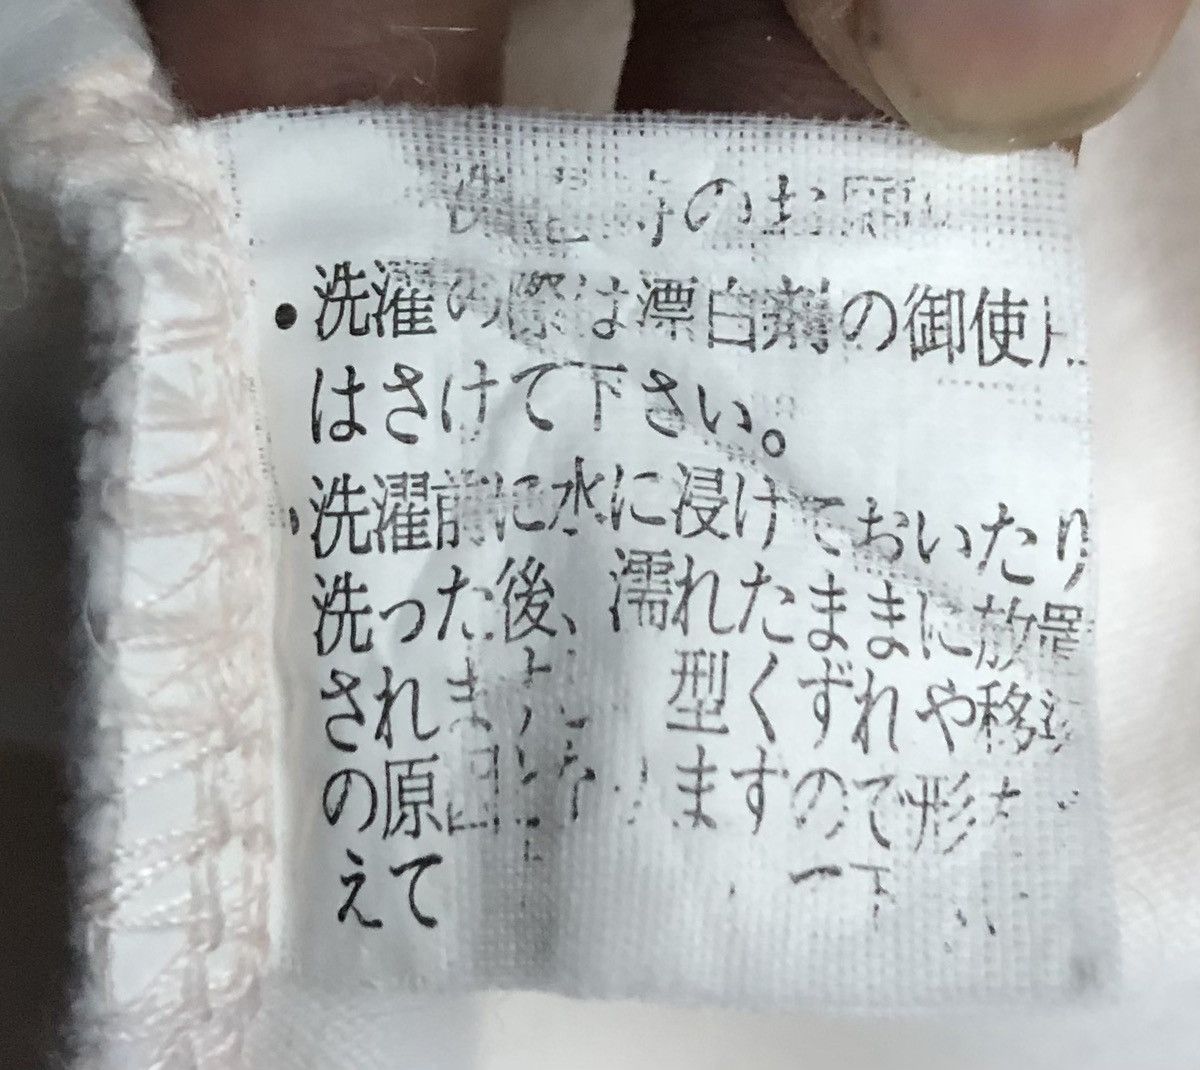 洗濯時のお願い
●洗濯の際は漂白剤の御使用
はさけて下さい。
・洗濯前に水に浸けておいたり
洗った後、濡れたままに放置
されま 型くずれや移染
の原因になりますので形を
えて 下さい